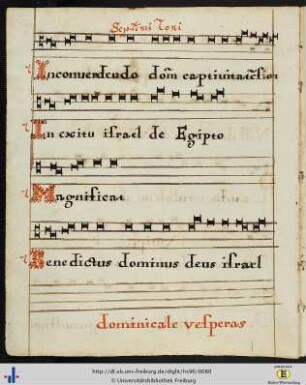 Septimi Toni
In conuertendo dom̄ captiuitatē sion
In exitu israel de Egipto
Magnificat
Benedictus dominus deus israel
dominicale vesperas
http://dl.ub.uni-freiburg.de/diglit/hs90/0060
© Universitätsbibliothek Freiburg